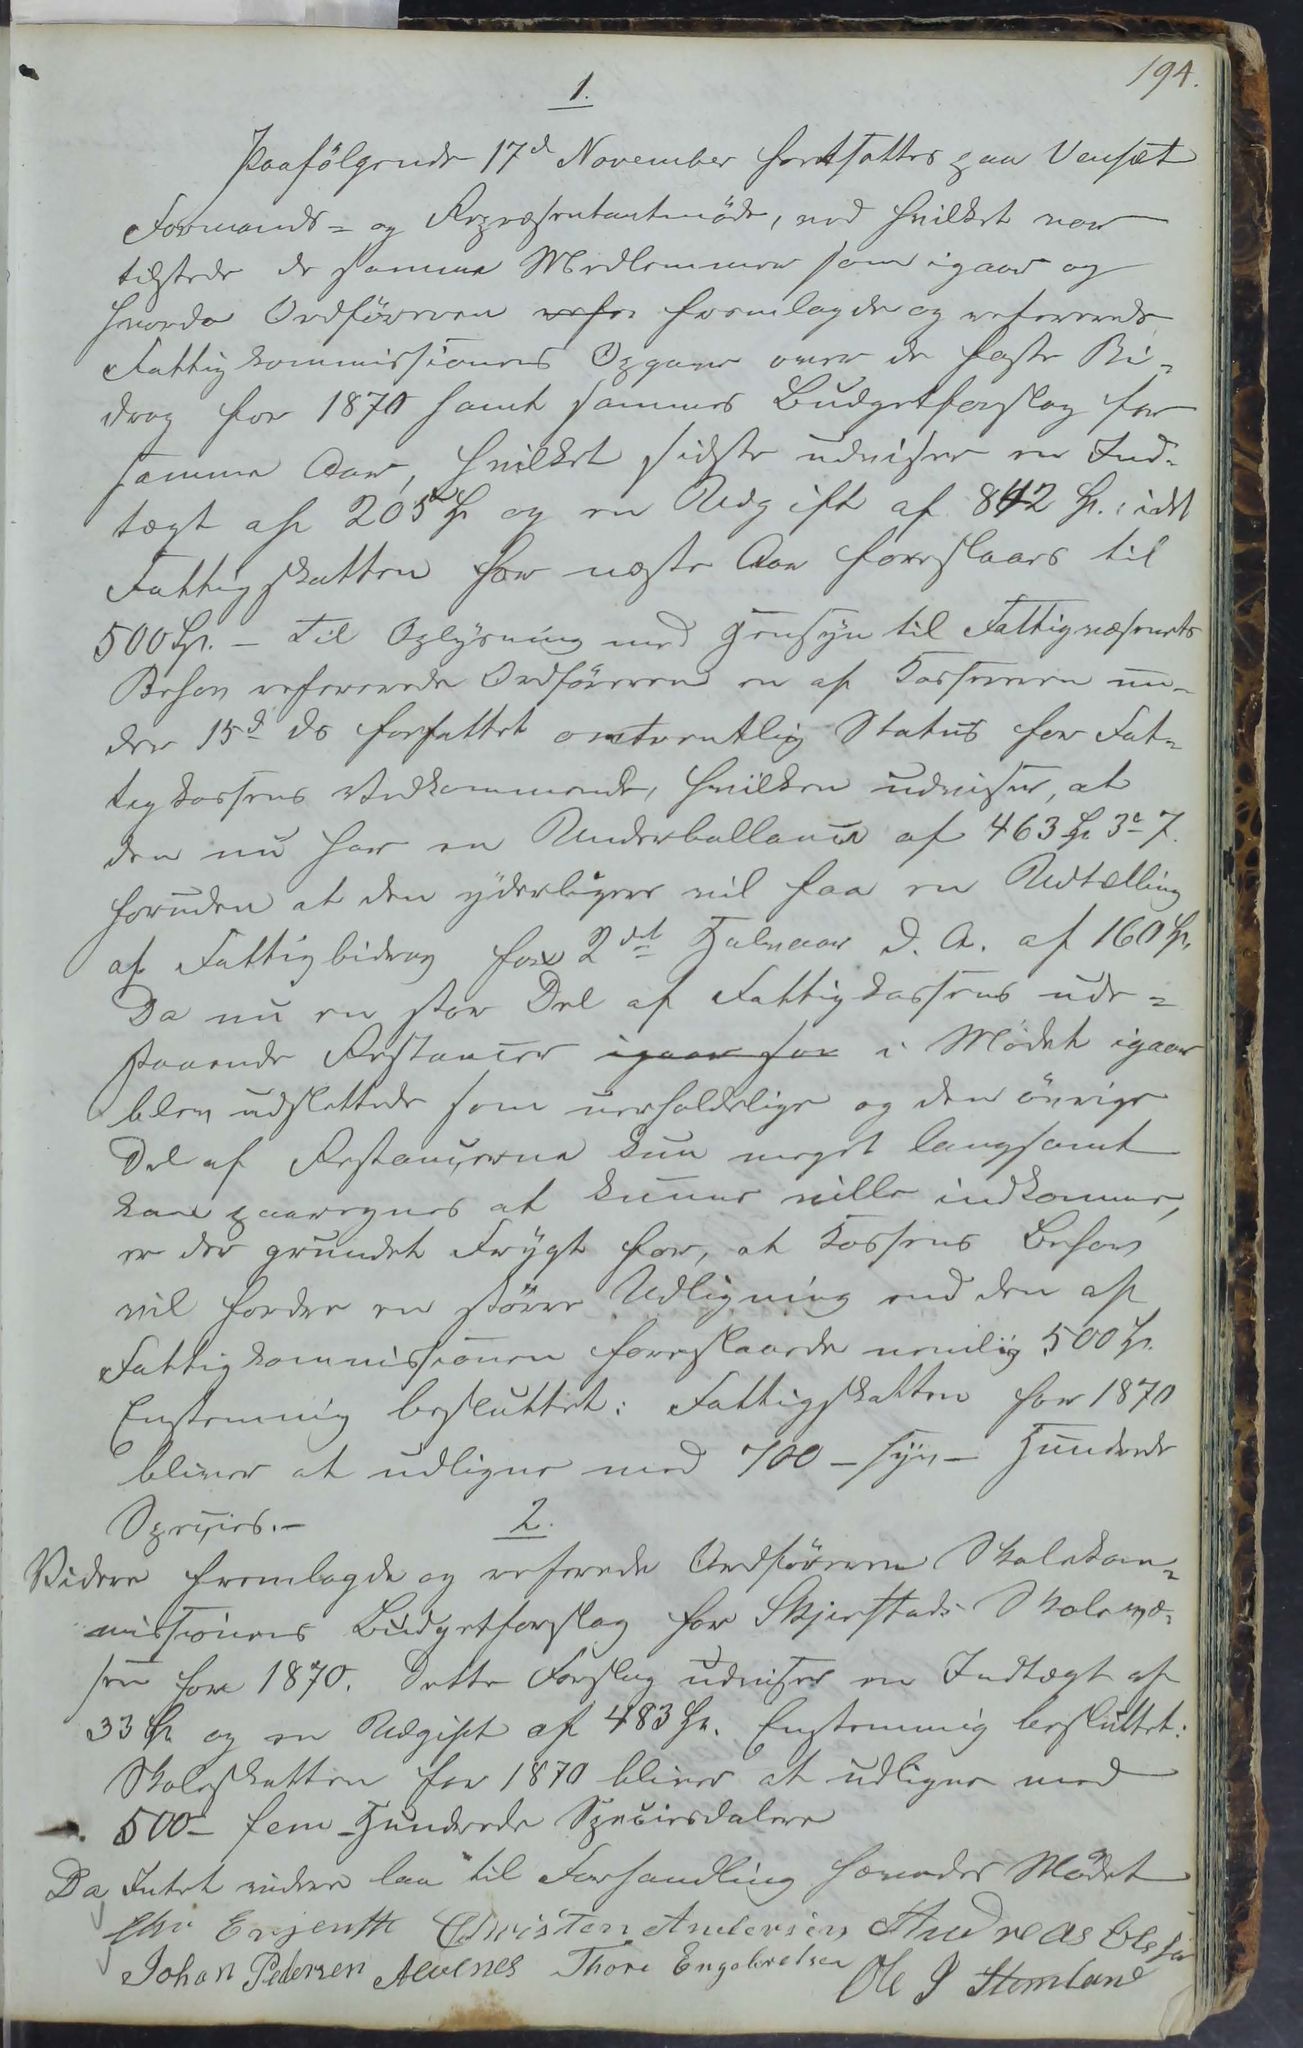 194.
1.
Paafölgende 17d November fortsattes paa Venset
Formands- og Repræsentantmöde, ved hvilket var
tilstede de samme Medlemmer som igaar og
hvorda Ordföreren refer fremlagde og refererede
Fattigkommissionens Opgave over de faste Bi-
drag for 1870 samt sammes Budgetforslag for
samme Aar, hvilket sidste udviser en Ind-
tægt af 205 Sp og en Udgift af 842 Sp.: idet
Fattigskatten for næste Aar foreslaaes til
500 Sp. - Til Oplysning med Hensyn til Fattigvæsenets
Behov refererede Ordföreren en af Kassereren un-
der 15d ds forfattet omtrentlig Status for Fat-
tigkassens Vedkommende, hvilken udviser, at
den nu har en Underballance af 463 Sp 3 - 7
foruden at den yderligere vil faa en Udtælling
af Fattigbidrag for 2det Halvaar d. A. af 160 Sp.
Da nu en stor Del af Fattigkassens ude-
staaende Restancer igaar for i Mödet igaar
blev udslettede som uerholdelige og den övrige
Del af Restancerne kun meget langsomt
kan paaregnes at kunne ville indkomme,
er der grundet Frygt for, at Kassens Behov
vil fordre en större Udligning end den af
Fattigkommissionen foreslaaede nemlig 500 Sp.
Enstemmig besluttet: Fattigskatten for 1870
bliver at udligne med 700 - syv - Hundrede
Species. -
2.
Videre fremlagde og referede Ordföreren Skolekom-
missionens Budgetforslag for Skjerstads Skolevæ-
sen for 1870. Dette Forslag udviser en Indtægt af
33 Sp og en Udgift af 483 Sp. Enstemmig besluttet:
Skoleskatten for 1870 bliver at udligne med
500 - fem Hundrede Speciesdalere
Da Intet videre laa til Forhandling hævedes Mödet
Chr Erjenth Christen Andersen Andreas Olesen
Johan Pedersen Alvenes Thore Engebretsen Ole J Stemland